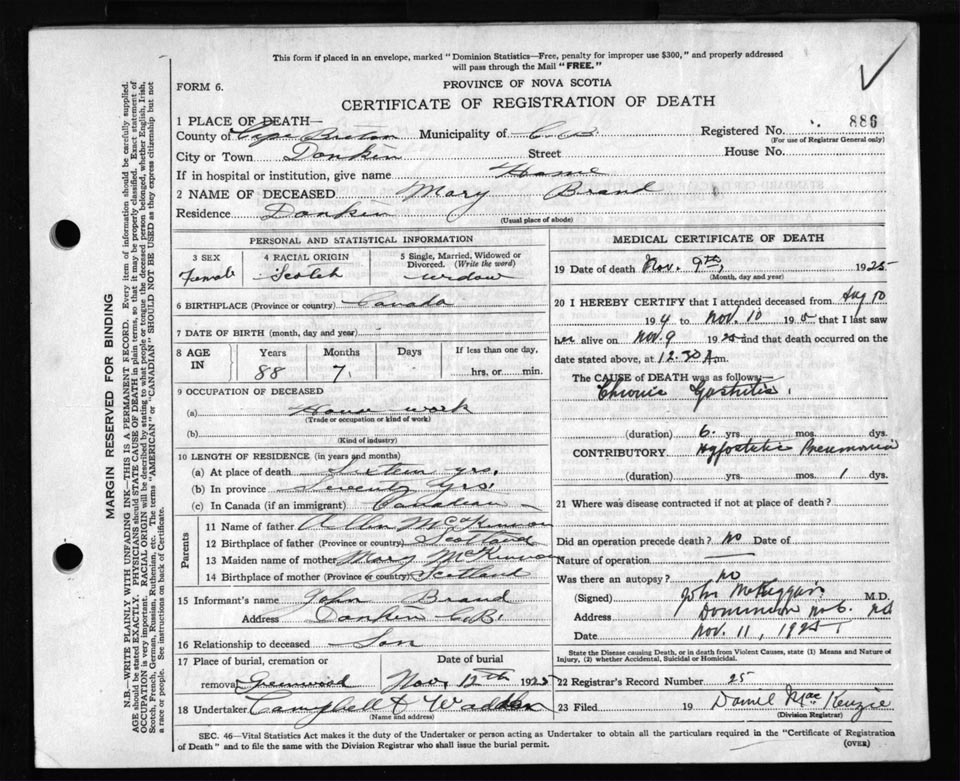 This form if placed in an envelope, marked "Dominion Statistics—Free, penalty for improper use $300," and properly addressed
will pass through the Mail "FREE."
FORM 6.
PROVINCE OF NOVA SCOTIA
CERTIFICATE OF REGISTRATION OF DEATH
1 PLACE OF DEATH—
Registered No. 886
(For use of Registrar General only)
County of Cape Breton Municipality of C.B
City or Town Donkin Street House No.
If in hospital or institution, give name Home
2 NAME OF DECEASED Mary Brand
Residence Donkin
(Usual place of abode)
PERSONAL AND STATISTICAL INFORMATION
3 SEX 4 RACIAL ORIGIN 5 Single, Married, Widowed or
Divorced. (Write the word)
Female Scotch widow
6 BIRTHPLACE (Province or country) Canada
7 DATE OF BIRTH (month, day and year)
8 AGE IN Years Months Days If less than one day,
88 7 hrs. or min.
9 OCCUPATION OF DECEASED
(a) House work
(Trade or occupation or kind of work)
(b)
(Kind of industry)
10 LENGTH OF RESIDENCE (in years and months)
(a) At place of death Sixteen yrs.
(b) In province Seventy yrs.
(c) In Canada (if an immigrant) Canadian
Parents
11 Name of father Allan McKinnon
12 Birthplace of father (Province or country) Scotland
13 Maiden name of mother Mary McKinnon
14 Birthplace of mother (Province or country) Scotland
15 Informant's name John Brand
Address Donkin C.B.
16 Relationship to deceased Son
17 Place of burial, cremation or Date of burial
removal Greenwood Nov. 12th 1925
18 Undertaker Campbell & Wadden
(Name and address)
MEDICAL CERTIFICATE OF DEATH
19 Date of death Nov. 9th, 1925
(Month, day and year)
20 I HEREBY CERTIFY that I attended deceased from Aug 10
192 to Nov. 10 192 that I last saw
her alive on Nov. 9 1925 and that death occurred on the
date stated above, at 12.30 A.m.
The CAUSE of DEATH was as follows:—
Chronic Gastritis.
(duration) 6 yrs. mos. dys.
CONTRIBUTORY Hypostatic Pneumonia
(duration) yrs. mos. 1 dys.
21 Where was disease contracted if not at place of death?
Did an operation precede death? no Date of
Nature of operation
Was there an autopsy? no
(Signed) John M.D.
Address Dominion No 6. NS
Date Nov. 11, 1925
State the Disease causing Death, or in death from Violent Causes, state (1) Means and Nature of
Injury, (2) whether Accidental, Suicidal or Homicidal.
22 Registrar's Record Number 25
23 Filed 19 Daniel MacKenzie
(Division Registrar)
SEC. 46—Vital Statistics Act makes it the duty of the Undertaker or person acting as Undertaker to obtain all the particulars required in the "Certificate of Registration
of Death" and to file the same with the Division Registrar who shall issue the burial permit.
(OVER)
MARGIN RESERVED FOR BINDING
N.B.—WRITE PLAINLY WITH UNFADING INK—THIS IS A PERMANENT RECORD. Every item of information should be carefully supplied.
AGE should be stated EXACTLY. PHYSICIANS should STATE CAUSE OF DEATH in plain terms, so that it may be properly classified. Exact statement of
OCCUPATION is very important. RACIAL ORIGIN will be described by stating to what people or tongue the deceased person belonged, whether English, Irish,
Scotch, French, German, Russian, Ruthenian, etc. The terms "AMERICAN" or "CANADIAN" SHOULD NOT BE USED as they express citizenship but not
a race or people. See instructions on back of Certificate.